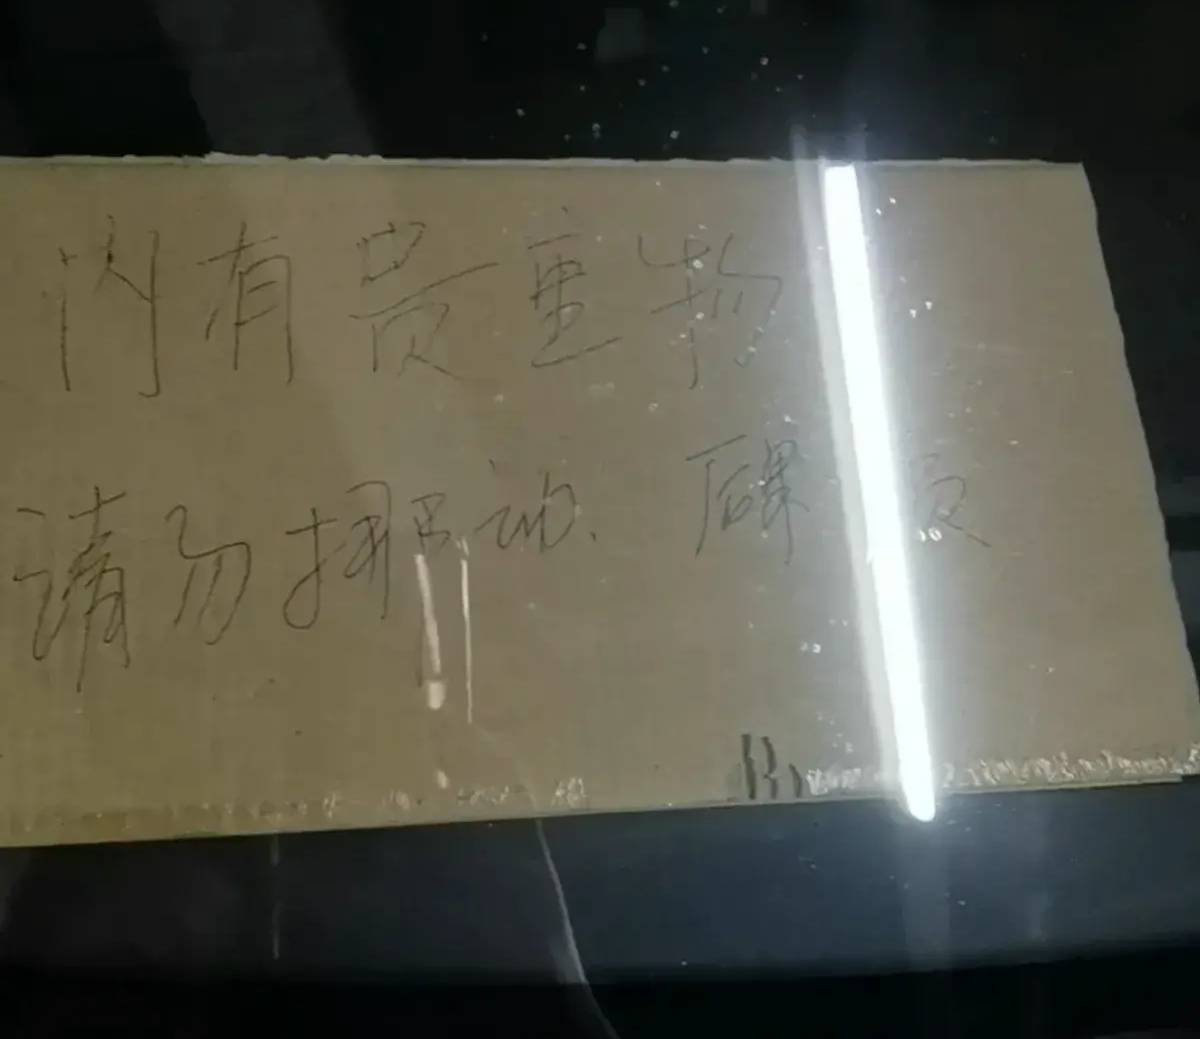 内有贵重物
请勿挪动、后果